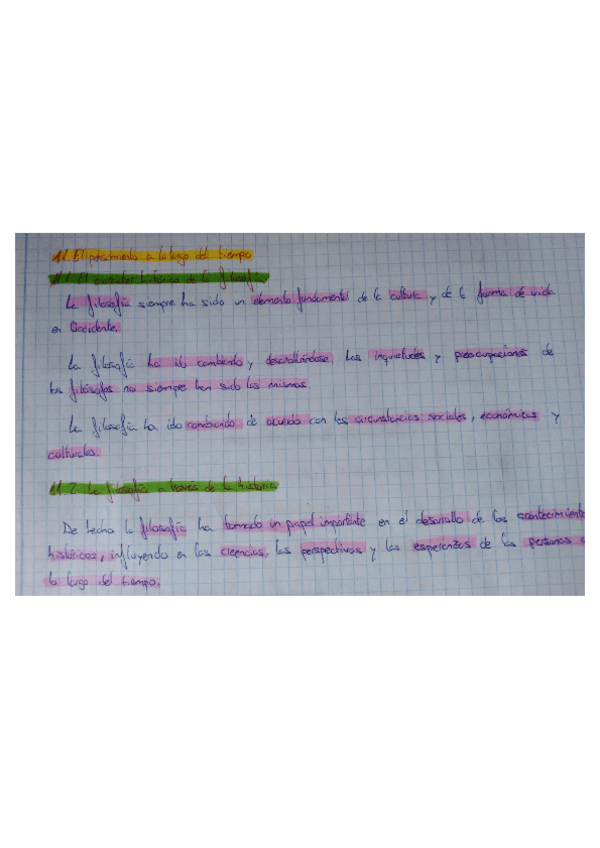 1/ El pensamiento a lo largo del tiempo
1.1 El carácter histórico de la filosofía
La filosofía siempre ha sido un elemento fundamental de la cultura y de la forma de vida
en Occidente.
La filosofía ha ido cambiando y desarrollándose, las inquietudes y preocupaciones de
los filósofos no siempre han sido las mismas
La filosofía ha ido cambiando de acuerdo con les circunstancias sociales, económicas y
culturales.
1.2. La filosofía a través de la historia
De hecho la filosofía ha tomado un papel importante en el desarrollo de los acontecimiento
históricos, influyendo en las creencias, las perspectivas y las esperanzas de las personas a
lo largo del tiempo.